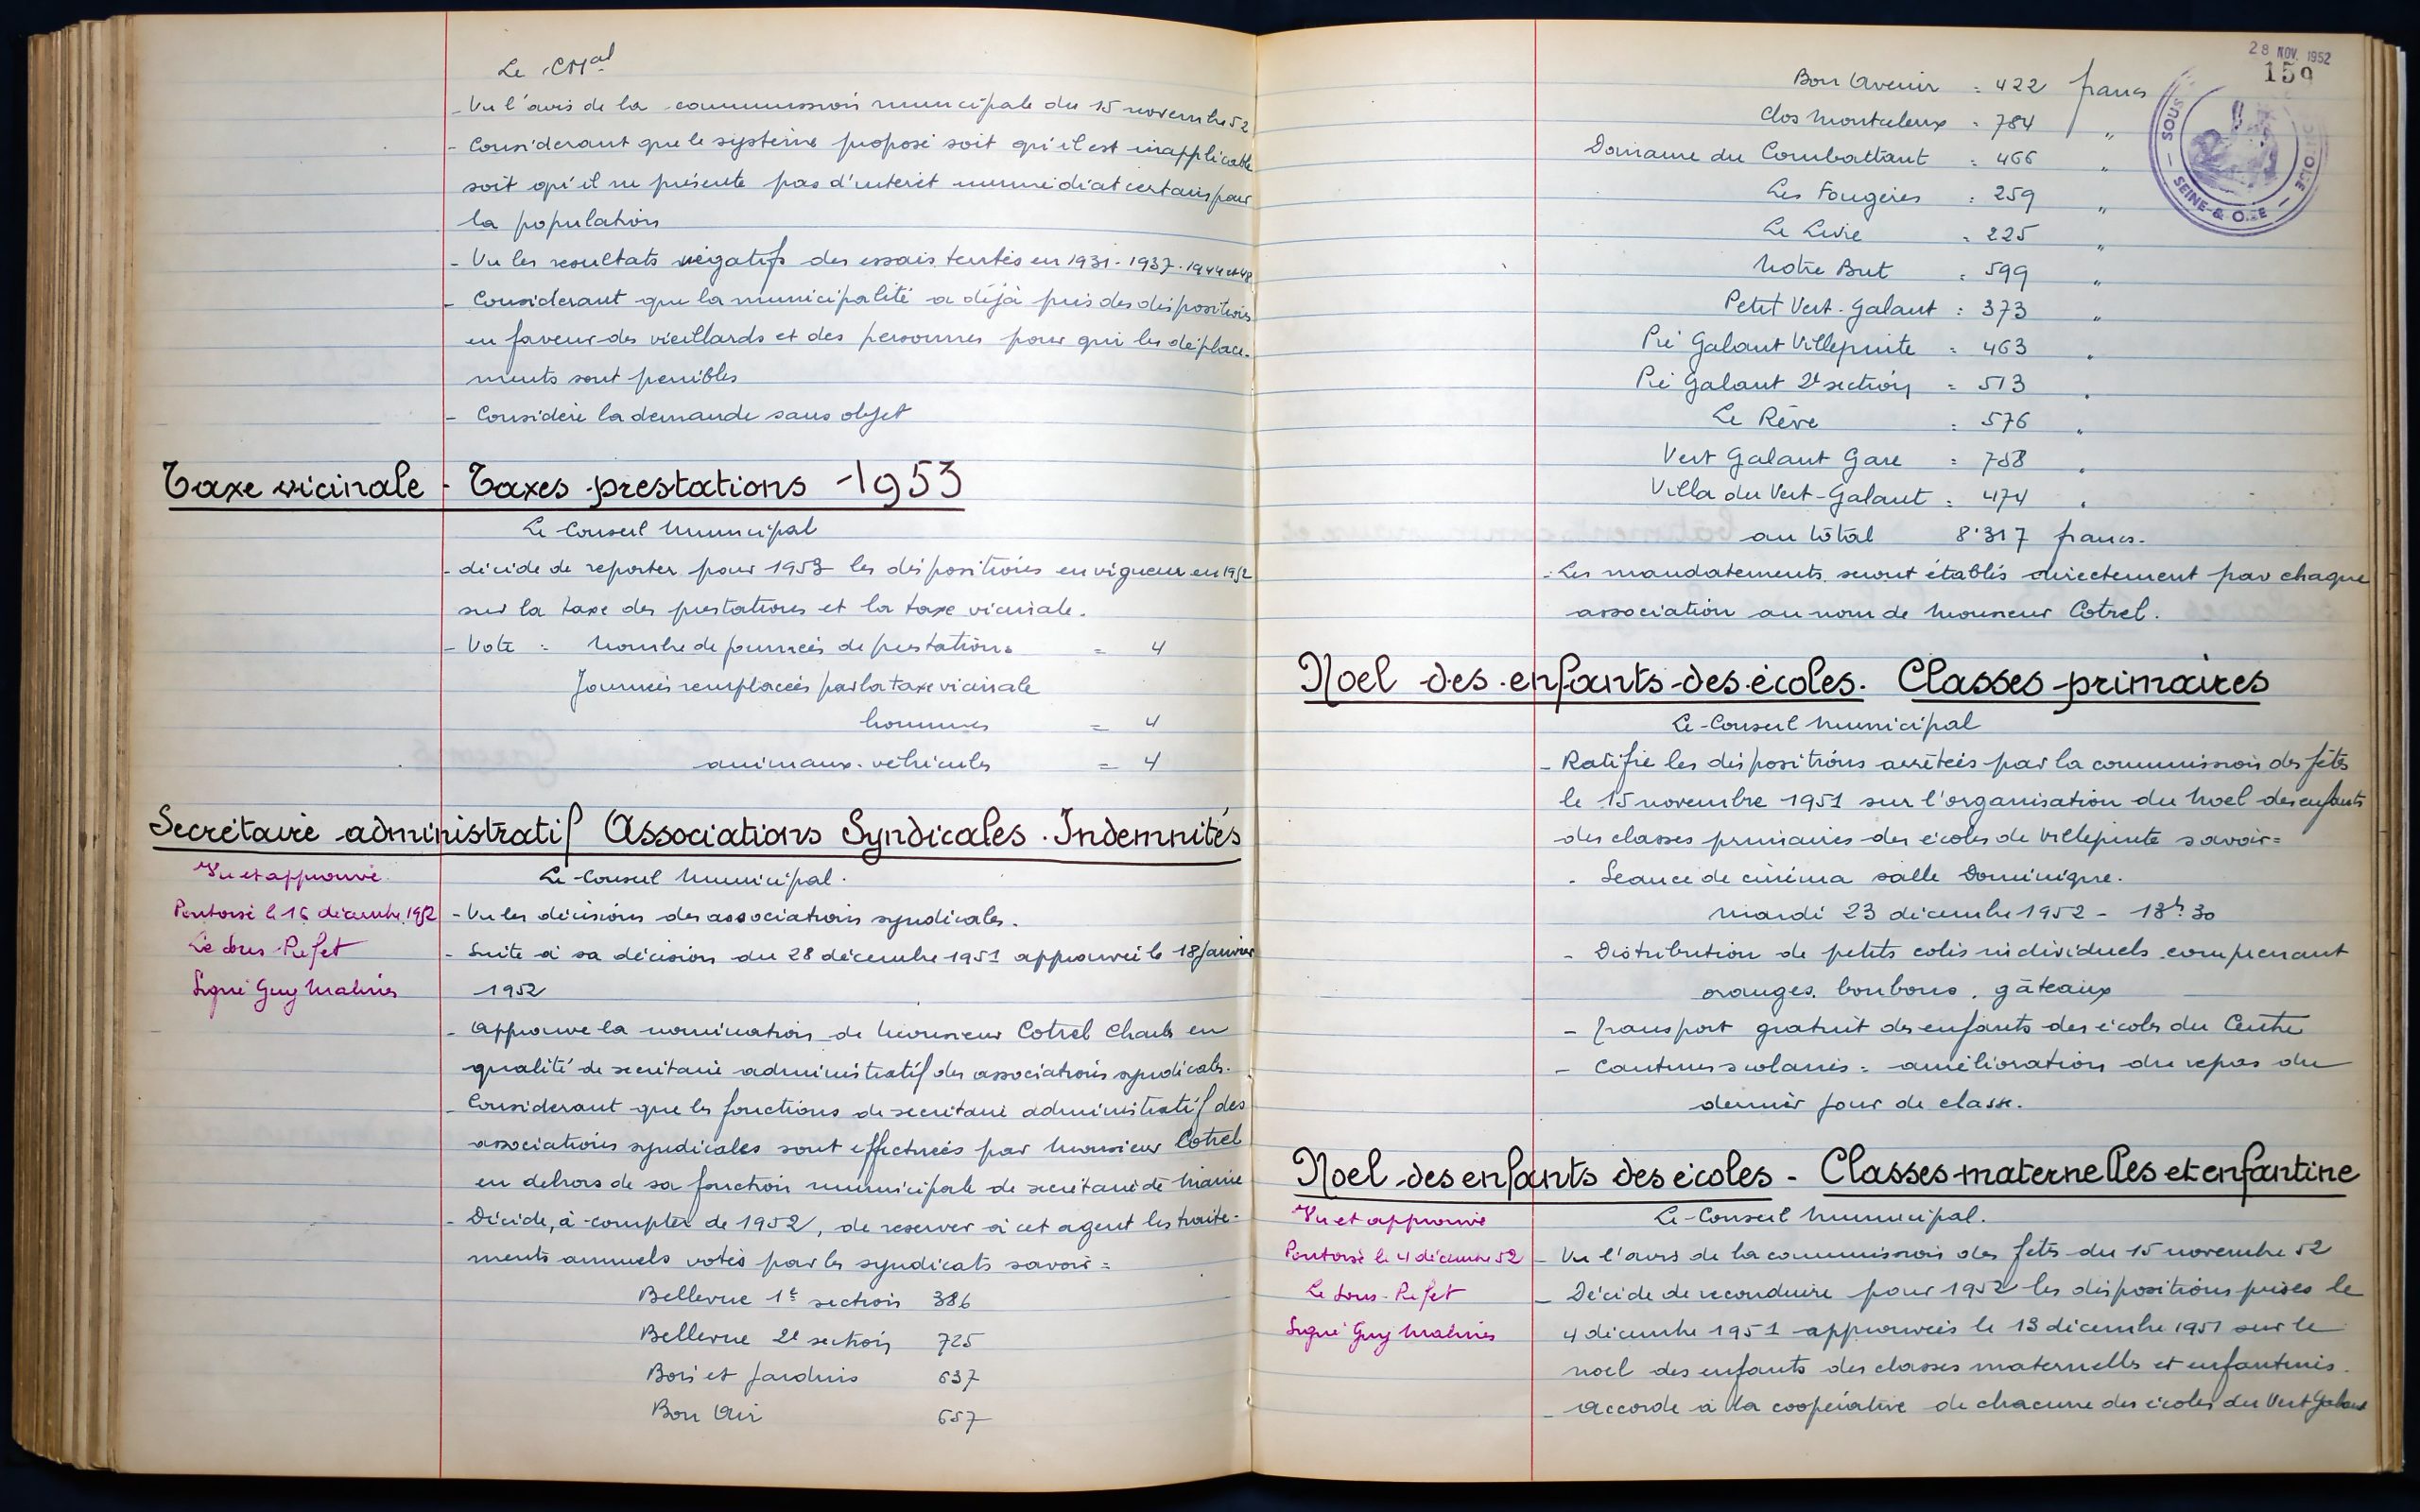 Le CMal
- Vu l'avis de la commission municipale du 15 novembre 52
- Considerant que le système proposé soit qu'il est inapplicable
soit qu'il ne présente pas d'interêt immédiat certains pour
la population
- Vu les resultats négatifs des essais tentés en 1931-1937-1944 et 48
- Considerant que la municipalité a déjà pris des dispositions
en faveur des vieillards et des personnes pour qui les déplace-
ments sont penibles
- Considère la demande sans objet
Taxe vicinale - Taxes prestations - 1953
Le Conseil Municipal
- décide de reporter pour 1953 les dispositions en vigueur en 1952
sur la taxe des prestations et la taxe vicinale.
- Vote = Nombre de journées de prestations = 4
Journées remplacées par la taxe vicinale
hommes = 4
animaux-véhicules = 4
Secrétaire administratif Associations Syndicales. Indemnités
Vu et approuvé
Pontoise le 16 décembre 1952
Le Sous-Préfet
Signé Guy Malines
Le Conseil Municipal.
- Vu les décisions des associations syndicales.
- Suite à sa décision du 28 décembre 1951 approuvée le 18 Janvier
1952
- Approuve la nomination de Monsieur Cotrel Charles en
qualité de secrétaire administratif des associations syndicales.
- Considerant que les fonctions de secrétaire administratif des
associations syndicales sont effectuées par Monsieur Cotrel
en dehors de sa fonction municipale de secrétaire de Mairie
- Décide, à compter de 1952, de reserver à cet agent les traite-
ments annuels votés par les syndicats savoir =
Bellevue 1e section 386
Bellevue 2e section 725
Bois et Jardins 637
Bon Air 657
28 NOV. 1952
159
SOUS
SEINE-&-OISE
Bon Avenir = 422 francs
Clos Montceleux = 784 "
Domaine du Combattant = 466 "
Les Fougères = 259 "
Le Livre = 225 "
Notre But = 599 "
Petit Vert-Galant = 373 "
Pré Galant Villepinte = 463 "
Pré Galant 2e section = 513 "
Le Rêve = 576 "
Vert Galant Gare = 758 "
Villa du Vert-Galant = 474 "
au total 8.317 francs.
- Les mandatements seront établis directement par chaque
association au nom de Monsieur Cotrel.
Noel des enfants des écoles. Classes primaires
Le Conseil Municipal
- Ratifie les dispositions arrêtées par la commission des fêtes
le 15 novembre 1951 sur l'organisation du Noel des enfants
des classes primaires des écoles de Villepinte savoir =
- Séance de cinéma salle Dominique.
Mardi 23 décembre 1952 - 13h.30
- Distribution de petits colis individuels comprenant
oranges, bonbons, gâteaux
- Transport gratuit des enfants des écoles du Centre
- Cantines scolaires = amélioration du repas du
dernier jour de classe.
Noel des enfants des écoles - Classes maternelles et enfantine
Vu et approuvé
Pontoise le 4 décembre 52
Le Sous-Préfet
Signé Guy Malines
Le Conseil Municipal.
- Vu l'avis de la commission des fêtes du 15 novembre 52
- Décide de reconduire pour 1952 les dispositions prises le
4 décembre 1951 approuvées le 13 décembre 1951 sur le
noel des enfants des classes maternelles et enfantines.
- Accorde à la coopérative de chacune des écoles du Vert Galant